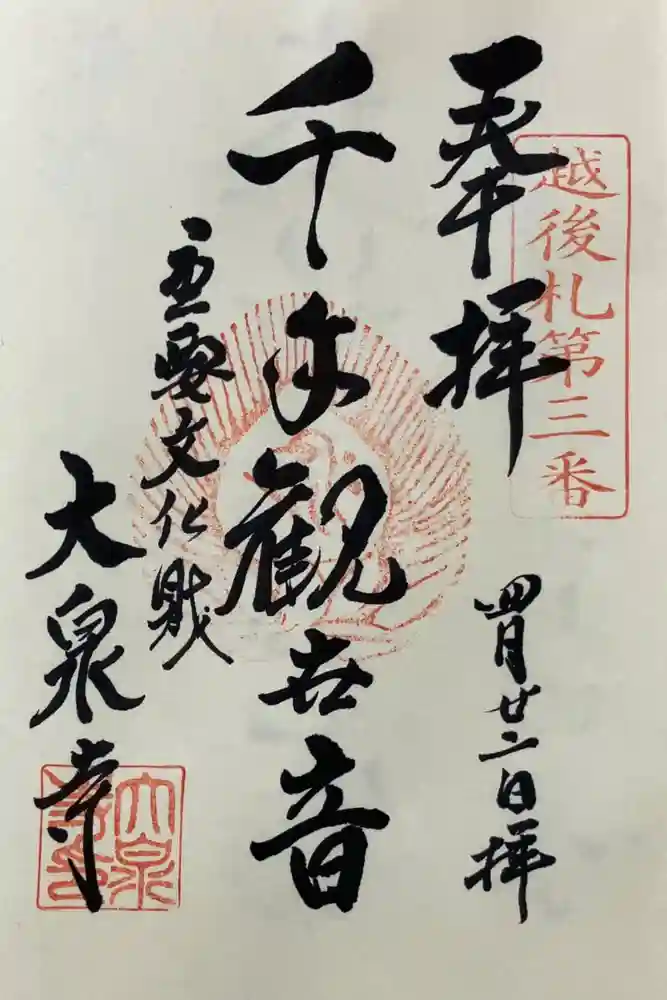 越後札第三番
奉拝
四月廿二日拝
千手観世音
重要文化財
大泉寺
大泉
寺印